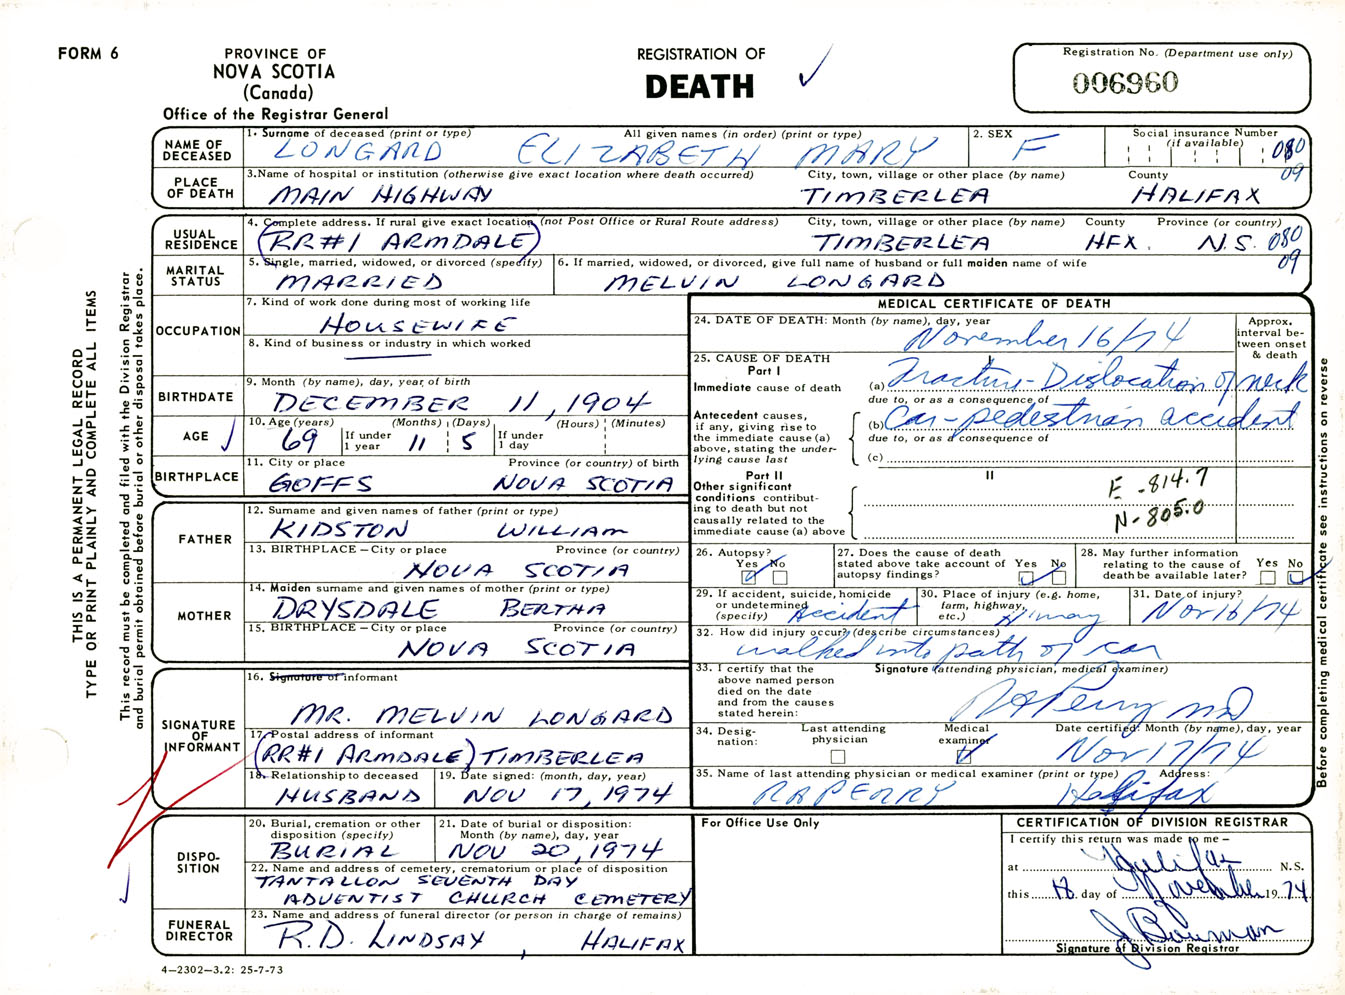 FORM 6
PROVINCE OF
NOVA SCOTIA
(Canada)
Office of the Registrar General
REGISTRATION OF
DEATH
Registration No. (Department use only)
006960
NAME OF DECEASED
1. Surname of deceased (print or type) All given names (in order) (print or type)
LONGARD ELIZABETH MARY
2. SEX
F
Social insurance Number
(if available)
080
09
PLACE OF DEATH
3. Name of hospital or institution (otherwise give exact location where death occurred) City, town, village or other place (by name) County
MAIN HIGHWAY TIMBERLEA HALIFAX
USUAL RESIDENCE
4. Complete address. If rural give exact location (not Post Office or Rural Route address) City, town, village or other place (by name) County Province (or country)
(RR#1 ARMDALE) TIMBERLEA HFX. N.S. 080
09
MARITAL STATUS
5. Single, married, widowed, or divorced (specify)
MARRIED
6. If married, widowed, or divorced, give full name of husband or full maiden name of wife
MELVIN LONGARD
OCCUPATION
7. Kind of work done during most of working life
HOUSEWIFE
8. Kind of business or industry in which worked
BIRTHDATE
9. Month (by name), day, year of birth
DECEMBER 11, 1904
AGE
10. Age (years) (Months) (Days) (Hours) (Minutes)
69 If under 1 year 11 5 If under 1 day
BIRTHPLACE
11. City or place Province (or country) of birth
GOFFS NOVA SCOTIA
FATHER
12. Surname and given names of father (print or type)
KIDSTON WILLIAM
13. BIRTHPLACE – City or place Province (or country)
NOVA SCOTIA
MOTHER
14. Maiden surname and given names of mother (print or type)
DRYSDALE BERTHA
15. BIRTHPLACE – City or place Province (or country)
NOVA SCOTIA
SIGNATURE OF INFORMANT
16. Signature of informant
MR. MELVIN LONGARD
17. Postal address of informant
(RR#1 ARMDALE) TIMBERLEA
18. Relationship to deceased
HUSBAND
19. Date signed: (month, day, year)
NOV 17, 1974
DISPO-
SITION
20. Burial, cremation or other
disposition (specify)
BURIAL
21. Date of burial or disposition:
Month (by name), day, year
NOV 20, 1974
22. Name and address of cemetery, crematorium or place of disposition
TANTALLON SEVENTH DAY
ADVENTIST CHURCH CEMETERY
FUNERAL DIRECTOR
23. Name and address of funeral director (or person in charge of remains)
R.D. LINDSAY, HALIFAX
4–2302–3.2: 25-7-73
MEDICAL CERTIFICATE OF DEATH
24. DATE OF DEATH: Month (by name), day, year
November 16/74
Approx. interval be-
tween onset
& death
25. CAUSE OF DEATH
Part I
Immediate cause of death
(a) Fracture-Dislocation of neck
due to, or as a consequence of
Antecedent causes,
if any, giving rise to
the immediate cause (a)
above, stating the under-
lying cause last
(b) Car-pedestrian accident
due to, or as a consequence of
(c)
Part II
II
Other significant
conditions contribut-
ing to death but not
causally related to the
immediate cause (a) above
E-814.7
N-805.0
26. Autopsy?
Yes No
27. Does the cause of death
stated above take account of
autopsy findings?
Yes No
28. May further information
relating to the cause of
death be available later?
Yes No
29. If accident, suicide, homicide
or undetermined
(specify)
Accident
30. Place of injury (e.g. home,
farm, highway,
etc.)
H'way
31. Date of injury?
Nov 16/74
32. How did injury occur? (describe circumstances)
walked into path of car
33. I certify that the
above named person
died on the date
and from the causes
stated herein:
Signature (attending physician, medical examiner)
RA Perry MD
34. Desig-
nation:
Last attending
physician
Medical
examiner
Date certified: Month (by name), day, year
Nov 17/74
35. Name of last attending physician or medical examiner (print or type) Address:
RA PERRY Halifax
For Office Use Only
CERTIFICATION OF DIVISION REGISTRAR
I certify this return was made to me –
at Halifax N.S.
this 18 day of November 1974
J Bowman
Signature of Division Registrar
THIS IS A PERMANENT LEGAL RECORD
TYPE OR PRINT PLAINLY AND COMPLETE ALL ITEMS
This record must be completed and filed with the Division Registrar
and burial permit obtained before burial or other disposal takes place.
Before completing medical certificate see instructions on reverse